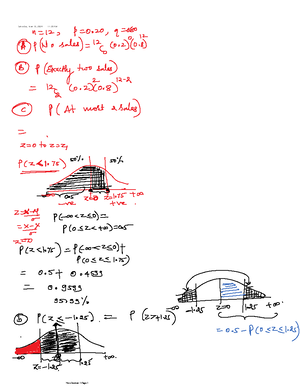 n=12, p=0.20, q=0.80
(A) P(No sales) = 12C0 (0.2)^0 (0.8)^12
(B) P(Exactly two sales)
= 12C2 (0.2)^2 (0.8)^12-2
(C) P(At most 2 sales)
=
z=0 to z=z1
P(z≤1.75)
50% 50%
0.5 z=0 z=1.75 +∞
-ve +ve
z = x-μ/σ
= x-x/σ
z=0
P(-∞<z≤0) =
P(0≤z<+∞)=0.5
P(z≤1.75) = P(-∞<z≤0)+
P(0≤z≤1.75)
= 0.5 + 0.4599
= 0.9599
95.99%
(b) P(z≤-1.25) = P(z≥1.25)
-∞ z=-1.25 1.25 +∞
-1.25 z=0 1.25 +∞
= 0.5 - P(0≤z≤1.25)